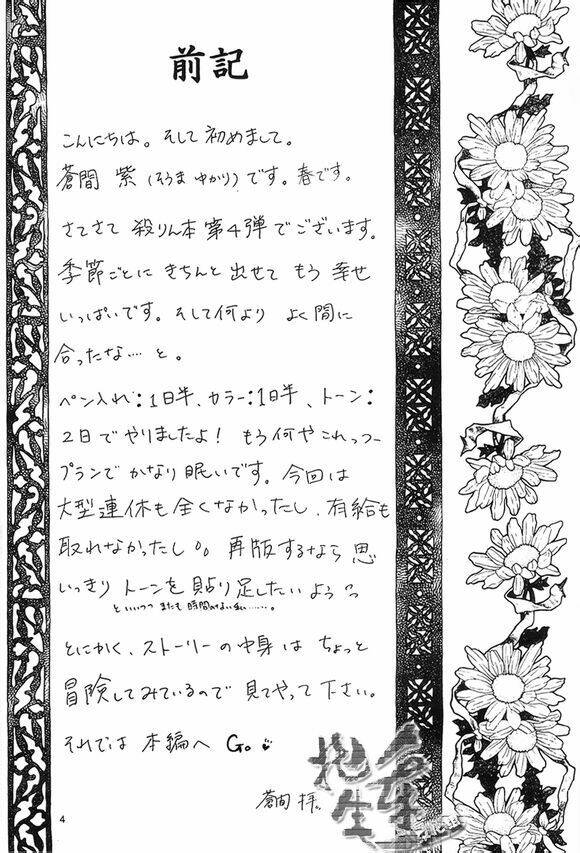 前記
こんにちは。そして初めまして。
蒼間 紫(そうま ゆかり)です。春です。
さてさて 殺りん本 第4弾でございます。
季節ごとに きちんと 出せて もう 幸せ
いっぱいです。そして何より よく間に
合ったな… と。
ペン入れ:1日半、カラー:1日半、トーン:
2日でやりましたよ! もう何やこれっつー
プランで かなり眠いです。今回は
大型連休も全くなかったし、有給も
取れなかったし。。再版するなら思
いっきり トーンを貼り足したいようっ
といいつつ またも 時間のない私……。
とにかく、ストーリーの中身は ちょっと
冒険してみているので 見てやって下さい。
それでは 本編へ Go
蒼間 拝。
4